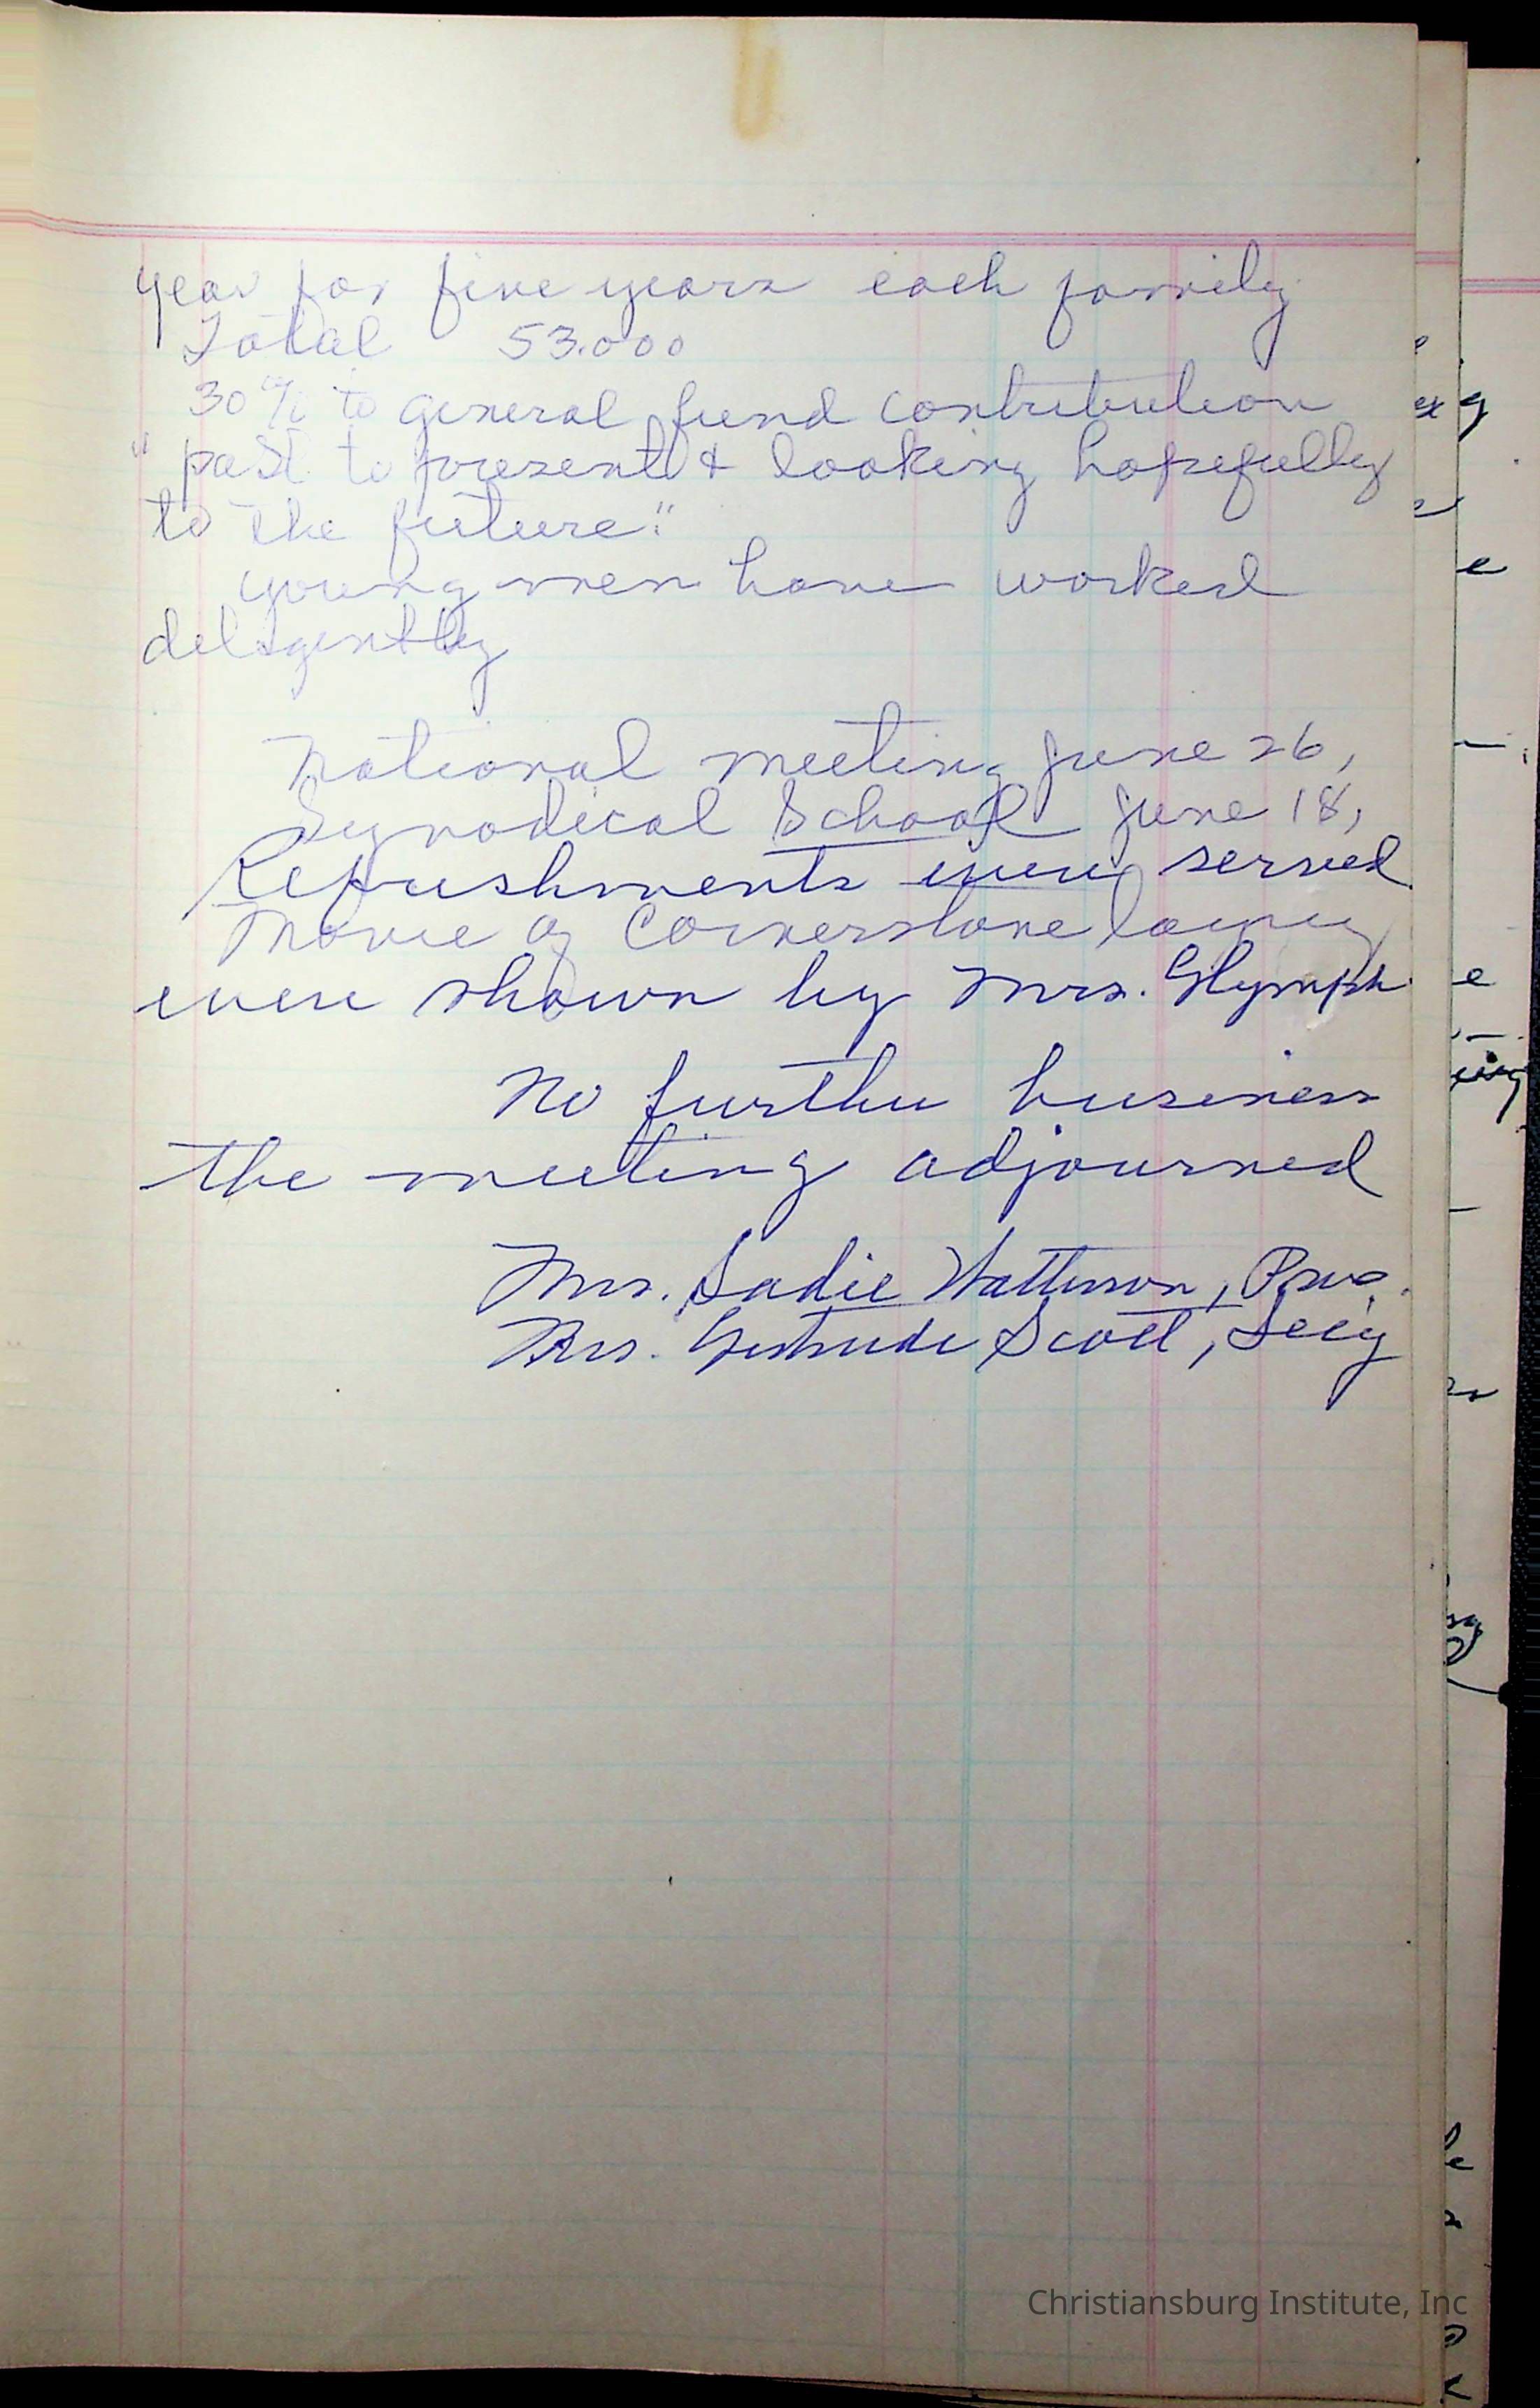 year for five years each family
Total 53.000
30% to general fund contribution
"past to present & looking hopefully
to the future."
young men have worked
deligently
National meeting June 26,
Synodical School June 18,
Refreshments were served
Movie of Cornerstone laying
were shown by Mrs. Glymph
No further business
the meeting adjourned
Mrs. Sadie Watterson, Pres.
Mrs. Gertrude Scott, Sec'y
Christiansburg Institute, Inc